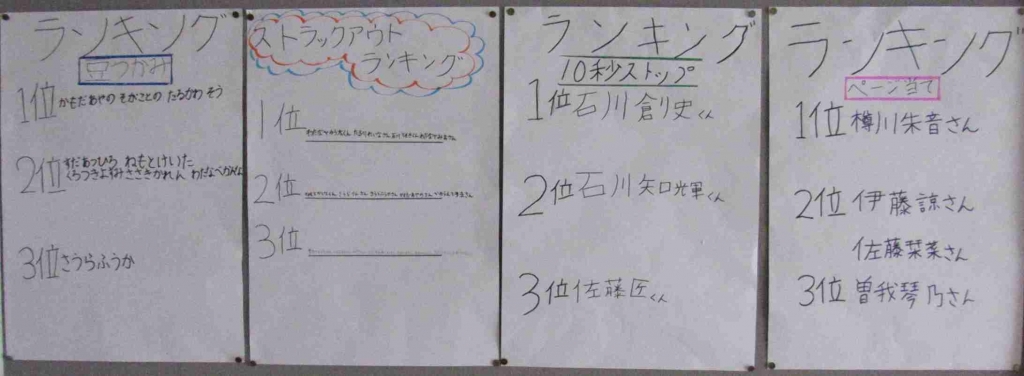 ランキング
豆つかみ
1位 かもだあやの そがことの たるかわ そう
2位 すだあつひろ ねもとけいた
くろつきよすみ ささきかれん
3位 さうらふうか
ストラックアウト
ランキング
1位
2位
3位
ランキング
10秒ストップ
1位 石川 創史くん
2位 石川 矢口光軍くん
3位 佐藤匠くん
ランキング
ページ当て
1位 樽川朱音さん
2位 伊藤諒さん
佐藤栞菜さん
3位 曽我琴乃さん